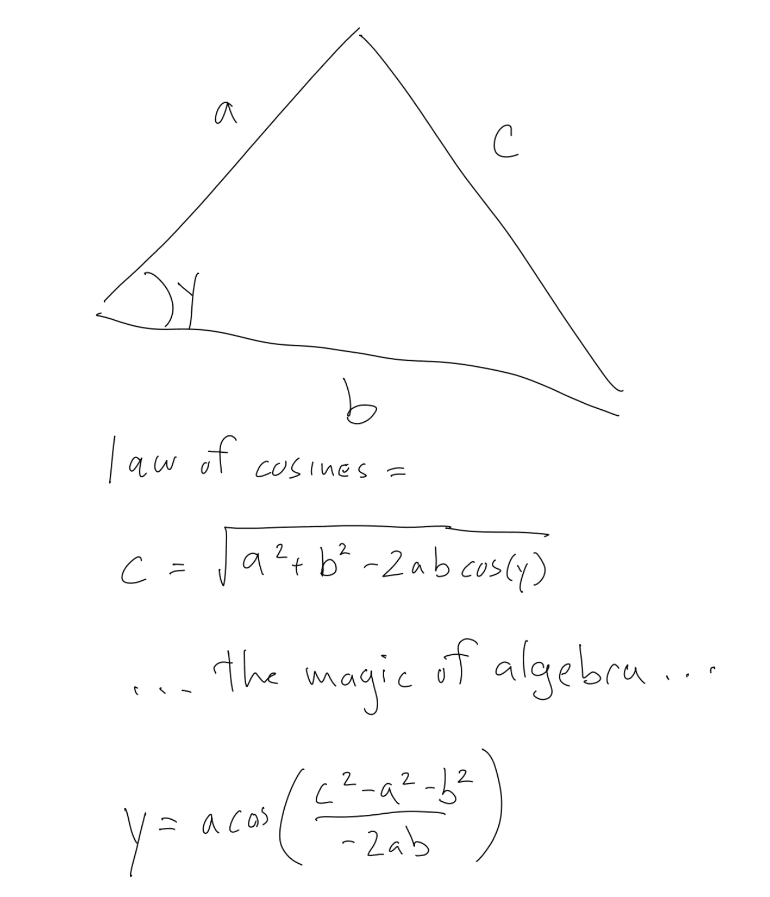 a
c
y
b
law of cosines =
c = √(a²+b²-2ab cos(y))
... the magic of algebra ...
y = acos((c²-a²-b²)/(-2ab))